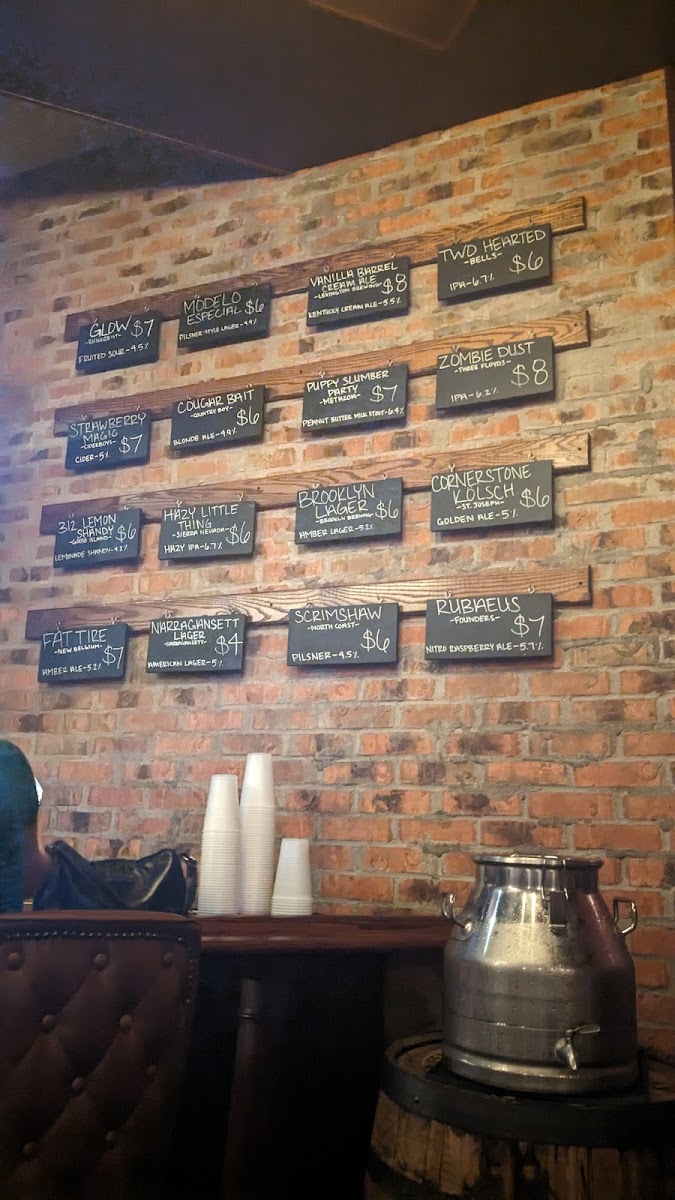 GLOW
$7
FRUITED SOUR-4.5%
MODELO
ESPECIAL $6
PILSNER-STYLE LAGER-4.9%
VANILLA BARREL
CREAM ALE
-LEXINGTON BREWING- $8
KENTUCKY CREAM ALE-5.5%
TWO HEARTED
-BELLS-
$6
IPA-6.7%
STRAWBERRY
MAGIC
-CIDERBOYS-
$7
CIDER-5%
COUGAR BAIT
-COUNTRY BOY-
$6
BLONDE ALE-4.9%
PUPPY SLUMBER
PARTY
-METAZOA-
$7
PEANUT BUTTER MILK STOUT-6.4%
ZOMBIE DUST
-THREE FLOYDS-
$8
IPA-6.2%
312 LEMON
SHANDY
-GOOSE ISLAND- $6
LEMONADE SHANDY-4.2%
HAZY LITTLE
THING
-SIERRA NEVADA- $6
HAZY IPA-6.7%
BROOKLYN
LAGER
-BROOKLYN BREWING- $6
AMBER LAGER-5.2%
CORNERSTONE
KÖLSCH
-ST. JOSEPH- $6
GOLDEN ALE-5%
FAT TIRE
-NEW BELGIUM-
$7
AMBER ALE-5.2%
NARRAGANSETT
LAGER
-NARRAGANSETT- $4
AMERICAN LAGER-5%
SCRIMSHAW
-NORTH COAST-
$6
PILSNER-4.5%
RUBAEUS
-FOUNDERS-
$7
NITRO RASPBERRY ALE-5.7%